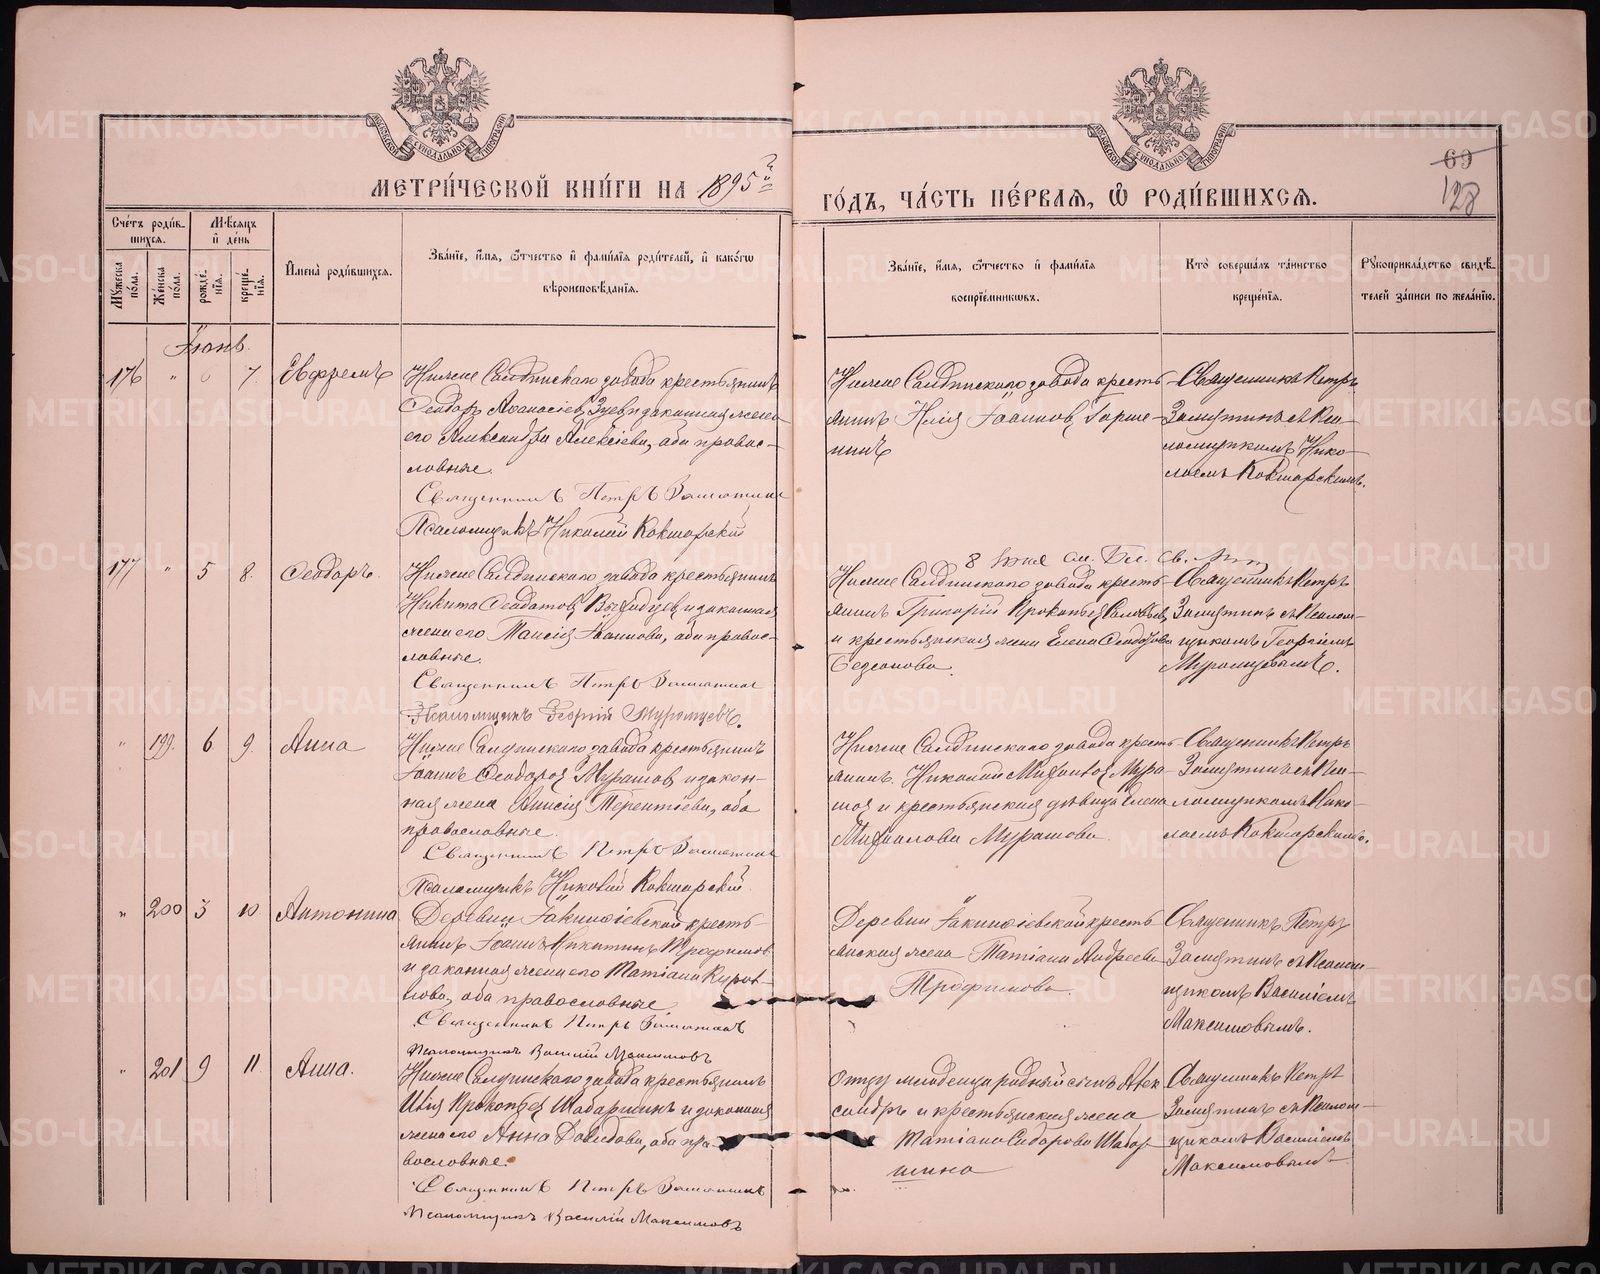 МОСКОВСКОЙ СѴНОДАЛЬНОЙ ТИПОГРАФІИ
МОСКОВСКОЙ СѴНОДАЛЬНОЙ ТИПОГРАФІИ
69
128
МЕТРИ́ЧЕСКОЙ КНИ́ГИ НА 1895й
ГО́ДЪ, ЧА́СТЬ ПЕ́РВАЯ, Ѡ РОДИ́ВШИХСЯ.
Счетъ родившихся.
Мужеска пола.
Женска пола.
Мѣсяцъ и день
рожденія.
крещенія.
Имена родившихся.
Званіе, имя, отчество и фамилія родителей, и какогѡ
вѣроисповѣданія.
Званіе, имя, отчество и фамилія
воспріемниковъ.
Кто совершалъ таинство
крещенія.
Рукоприкладство свидѣ-
телей записи по желанію.
Іюнь.
176 " 6 7. Евфремъ
Нижне Салдинскаго завода крестьянинъ
Феодоръ Аѳанасіев Зуев и законная жена
его Александра Алексіева, оба правос-
лавные.
Священникъ Петръ Замятин
Псаломщикъ Николай Кокшарскій
Нижне Салдинскаго завода кресть-
янинъ Илія Іоаннов
Священникъ Петръ
Замятинъ съ Пса-
ломщикомъ Нико-
лаемъ Кокшарскимъ.
177 " 5 8. Феодоръ.
Нижне Салдинскаго завода крестьянинъ
Никита Феодотов и законная
жена его Таисія Іоаннова, оба правос-
лавные.
Священникъ Петръ Замятин
Псаломщикъ Георгій Муромцевъ.
Нижне Салдинскаго завода кресть-
янинъ Григорій Прокопьев
и крестьянская жена Елена
Священникъ Петръ
Замятинъ съ Псалом-
щикомъ Георгіемъ
Муромцевымъ.
" 199. 6 9. Анна
Нижне Салдинскаго завода крестьянинъ
Іоаннъ Феодоров Мурашов и закон-
ная жена Анисія Терентіева, оба
православные.
Священникъ Петръ Замятин
Псаломщикъ Николай Кокшарскій
Нижне Салдинскаго завода кресть-
янинъ Николай Михаилов Мура-
шов и крестьянская дѣвица Елена
Михаилова Мурашова.
Священникъ Петръ
Замятинъ съ Пса-
ломщикомъ Нико-
лаемъ Кокшарскимъ.
" 200 5 10 Антонина
Деревни Іакинѳіевской кресть-
янинъ Іоаннъ Никитинъ Трофимов
и законная жена его Татіана
оба православные.
Священникъ Петръ Замятинъ
Псаломщикъ Василій Максимовъ
Деревни Іакинѳіевской кресть-
янская жена Татіана Андреева
Трофимова.
Священникъ Петръ
Замятинъ съ Псалом-
щикомъ Василіемъ
Максимовымъ.
" 201 9 11 Анна.
Нижне Салдинскаго завода крестьянинъ
Илія Прокопьев Шабаршинъ и законная
жена его Анна Давидова, оба пра-
вославные.
Священникъ Петръ Замятинъ
Псаломщикъ Василій Максимовъ
Отцу младенца родный сынъ Алек
сандръ и крестьянская жена
Татіана Сидорова Шабар
шина
Священникъ Петръ
Замятинъ съ Псалом-
щикомъ Василіемъ
Максимовымъ
METRIKI.GASO-URAL.RU